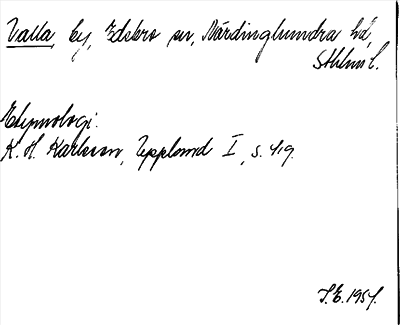 Valla, by, Edebro sn, Närdinghundra hd,
Sthlms l.
Etymologi:
K. H. Karlsson, Uppland I, s. 419.
S.E. 1954.